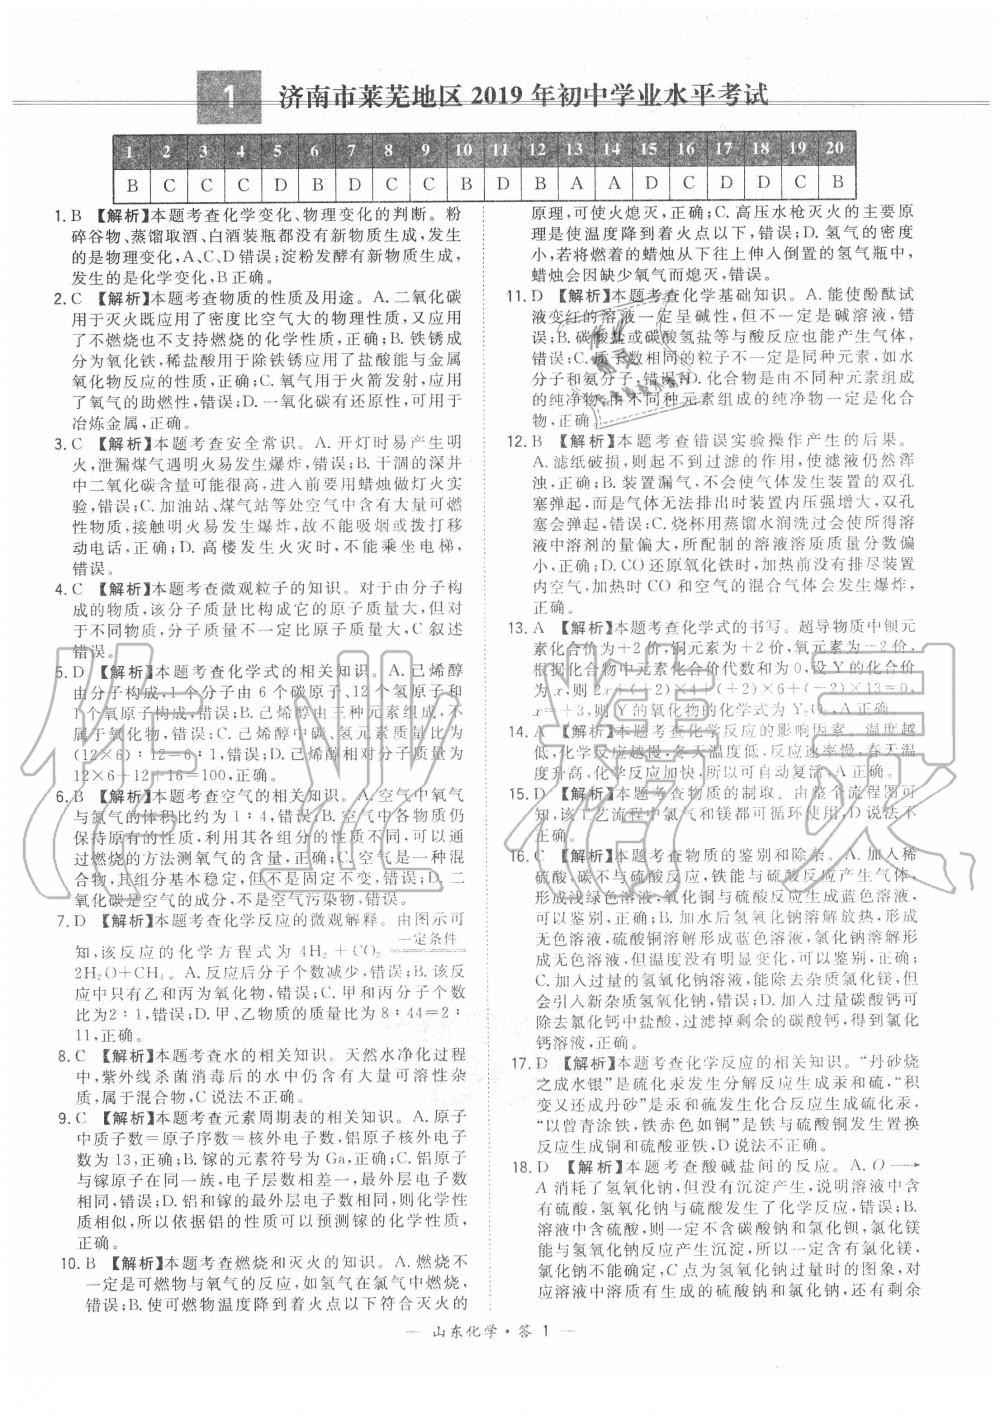 1 济南市莱芜地区 2019 年初中学业水平考试
1 2 3 4 5 6 7 8 9 10 11 12 13 14 15 16 17 18 19 20
B C C C D B D C C B D B A A D C D D C B
1. B 【解析】本题考查化学变化、物理变化的判断。粉
碎谷物、蒸馏取酒、白酒装瓶都没有新物质生成,发生
的是物理变化,A、C、D 错误;淀粉发酵有新物质生成,
发生的是化学变化,B 正确。
2. C 【解析】本题考查物质的性质及用途。A. 二氧化碳
用于灭火既应用了密度比空气大的物理性质,又应用
了不燃烧也不支持燃烧的化学性质,正确;B. 铁锈成
分为氧化铁,稀盐酸用于除铁锈应用了盐酸能与金属
氧化物反应的性质,正确;C. 氧气用于火箭发射,应用
了氧气的助燃性,错误;D. 一氧化碳有还原性,可用于
冶炼金属,正确。
3. C 【解析】本题考查安全常识。A. 开灯时易产生明
火,泄漏煤气遇明火易发生爆炸,错误;B. 干涸的深井
中二氧化碳含量可能很高,进入前要用蜡烛做灯火实
验,错误;C. 加油站、煤气站等处空气中含有大量可燃
性物质,接触明火易发生爆炸,故不能吸烟或拨打移
动电话,正确;D. 高楼发生火灾时,不能乘坐电梯,
错误。
4. C 【解析】本题考查微观粒子的知识。对于由分子构
成的物质,该分子质量比构成它的原子质量大,但对
于不同物质,分子质量不一定比原子质量大,C 叙述
错误。
5. D 【解析】本题考查化学式的相关知识。A. 己烯醇
由分子构成,1 个分子由 6 个碳原子、12 个氢原子和
1 个氧原子构成,错误;B. 己烯醇由三种元素组成,不
属于氧化物,错误;C. 己烯醇中碳、氢元素质量比为
(12×6)∶12=6∶1,错误;D. 己烯醇相对分子质量为
12×6+12+16=100,正确。
6. B 【解析】本题考查空气的相关知识。A. 空气中氧气
与氮气的体积比约为 1∶4,错误;B. 空气中各物质仍
保持原有的性质,利用其各组分的性质不同,可以通
过燃烧的方法测氧气的含量,正确;C. 空气是一种混
合物,其组分基本稳定,但不是固定不变,错误;D. 二
氧化碳是空气的成分,不是空气污染物,错误。
7. D 【解析】本题考查化学反应的微观解释。由图示可
知,该反应的化学方程式为 4H₂+CO₂ 一定条件
2H₂O+CH₄。A. 反应后分子个数减少,错误;B. 该反
应中只有乙和丙为氧化物,错误;C. 甲和丙分子个数
比为2∶1,错误;D. 甲、乙物质的质量比为 8∶44=2∶
11,正确。
8. C 【解析】本题考查水的相关知识。天然水净化过程
中,紫外线杀菌消毒后的水中仍含有可溶性杂
质,属于混合物,C 说法不正确。
9. C 【解析】本题考查元素周期表的相关知识。A. 原子
中质子数=原子序数=核外电子数,铝原子核外电子
数为 13,正确;B. 镓的元素符号为 Ga,正确;C. 铝原子
与镓原子在同一族,电子层数相差一,最外层电子数
相同,错误;D. 铝和镓的最外层电子数相同,则化学性
质相似,所以依据铝的性质可以预测镓的化学性质,
正确。
10. B 【解析】本题考查燃烧和灭火的知识。A. 燃烧不
一定是可燃物与氧气的反应,如氢气在氯气中燃烧,
错误;B. 使可燃物温度降到着火点以下符合灭火的
原理,可使火熄灭,正确;C. 高压水枪灭火的主要原
理是使温度降到着火点以下,错误;D. 氢气的密度
小,若将燃着的蜡烛从下往上伸入倒置的氢气瓶中,
蜡烛会因缺少氧气而熄灭,错误。
11. D 【解析】本题考查化学基础知识。A. 能使酚酞试
液变红的溶液一定呈碱性,但不一定是碱溶液,错
误;B. 碳酸盐或碳酸氢盐等与酸反应也能产生气体,
错误;C. 质子数相同的粒子不一定是同种元素,如水
分子和氨分子,错误;D. 化合物是由不同种元素组成
的纯净物,由不同种元素组成的纯净物一定是化合
物,正确。
12. B 【解析】本题考查错误实验操作产生的后果。
A. 滤纸破损,则起不到过滤的作用,使滤液仍然浑
浊,正确;B. 装置漏气,不会使气体发生装置的双孔
塞弹起,而是气体无法排出时装置内压强增大,双孔
塞会弹起,错误;C. 烧杯用蒸馏水润洗过会使所得溶
液中溶剂的量偏大,所配制的溶液溶质质量分数偏
小,正确;D. CO 还原氧化铁时,加热前没有排尽装置
内空气,加热时 CO 和空气的混合气体会发生爆炸,
正确。
13. A 【解析】本题考查化学式的书写。超导物质中钡元
素化合价为+2 价,铜元素为+2价,氧元素为-2 价,
根据化合物中元素化合价代数和为 0,设 Y 的化合价
为 x,则 2x+(+2)×4+(+2)×6+(-2)×13=0,
x=+3,则 Y 的氧化物的化学式为 Y₂O₃,A 正确。
14. A 【解析】本题考查化学反应的影响因素。温度越
低,化学反应越慢,冬天温度低,反应速率慢,春天温
度升高,化学反应加快,所以可自动复活,A 正确。
15. D 【解析】本题考查物质的制取。由整个流程图可
知,该工艺流程中氯气和镁都可循环使用,D 说法不
正确。
16. C 【解析】本题考查物质的鉴别和除杂。A. 加入稀
硫酸,碳不与硫酸反应,铁能与硫酸反应产生气体,
形成浅绿色溶液,氧化铜与硫酸反应生成蓝色溶液,
可以鉴别,正确;B. 加水后氢氧化钠溶解放热,形成
无色溶液,硫酸铜溶解形成蓝色溶液,氯化钠溶解形
成无色溶液,但温度没有明显变化,可以鉴别,正确;
C. 加入过量的氢氧化钠溶液,能除去杂质氯化镁,但
会引入新杂质氢氧化钠,错误;D. 加入过量碳酸钙可
除去氯化钙中盐酸,过滤掉剩余的碳酸钙,得到氯化
钙溶液,正确。
17. D 【解析】本题考查化学反应的相关知识。“丹砂烧
之成水银”是硫化汞发生分解反应生成汞和硫,“积
变又还成丹砂”是汞与硫发生化合反应生成硫化汞,
“以曾青涂铁,铁赤色如铜”是铁与硫酸铜发生置换
反应生成铜和硫酸亚铁,D 说法不正确。
18. D 【解析】本题考查酸碱盐间的反应。A. O →
A 消耗了氢氧化钠,但没有沉淀产生,说明溶液中含
有硫酸,氢氧化钠与硫酸发生了化学反应,错误;B.
溶液中含硫酸,则一定不含碳酸钠和氯化钡,氯化镁
能与氢氧化钠反应产生沉淀,所以一定含有氯化镁,
氯化钠不能确定,C 点为氢氧化钠过量时的图象,对
应溶液中溶质有生成的硫酸钠和氯化钠,还有剩余
— 山东化学·答 1 —